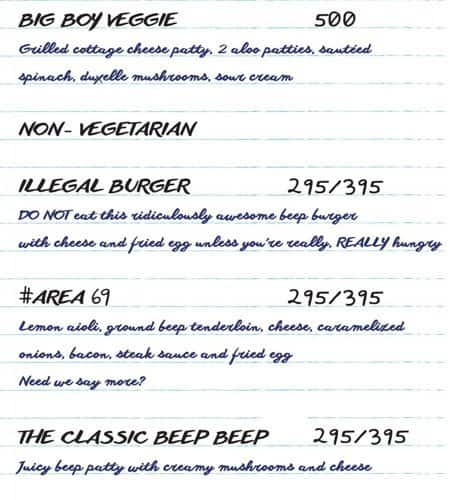 BIG BOY VEGGIE 500
Grilled cottage cheese patty, 2 aloo patties, sautéed
spinach, duxelle mushrooms, sour cream
NON- VEGETARIAN
ILLEGAL BURGER 295/395
DO NOT eat this ridiculously awesome beep burger
with cheese and fried egg unless you're really, REALLY hungry
#AREA 69 295/395
Lemon aioli, ground beep tenderloin, cheese, caramelized
onions, bacon, steak sauce and fried egg
Need we say more?
THE CLASSIC BEEP BEEP 295/395
Juicy beep patty with creamy mushrooms and cheese